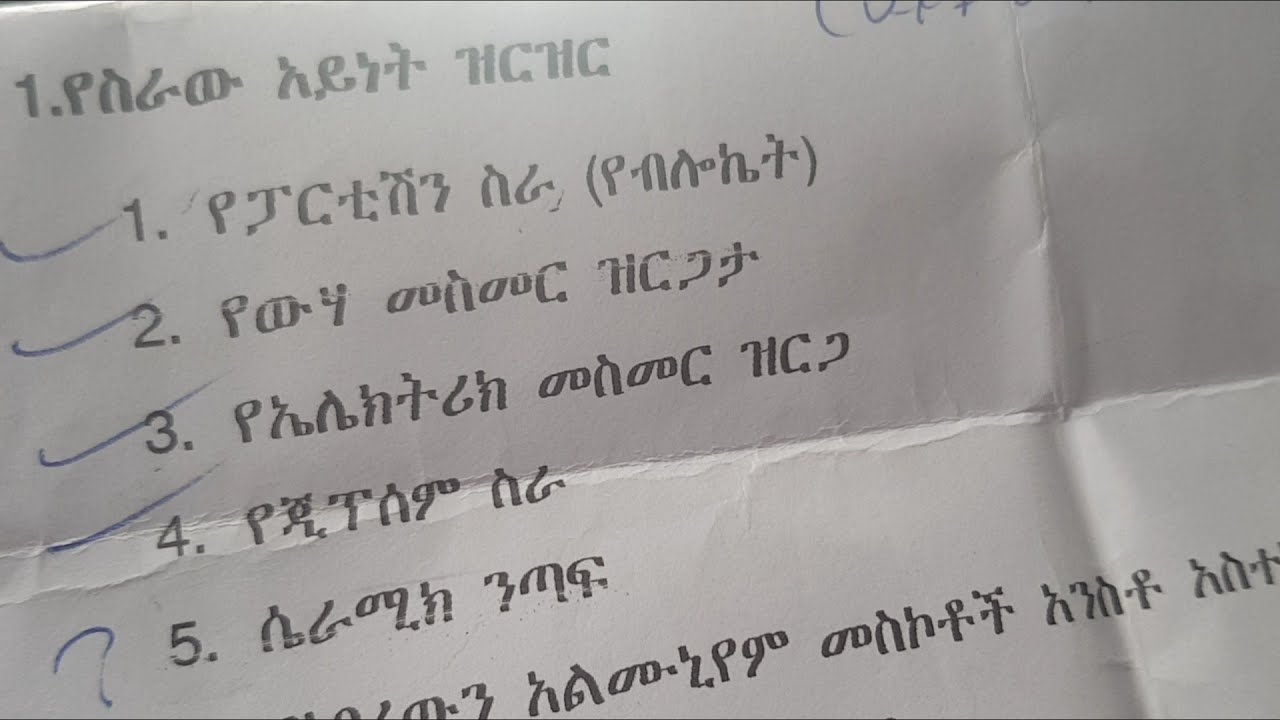 1.የስራው አይነት ዝርዝር
1. የፓርቲሽን ስራ (የብሎኬት)
2. የውሃ መስመር ዝርጋታ
3. የኤሌክትሪክ መስመር ዝርጋ
4. የጂፕሰም ስራ
5. ሴራሚክ ንጣፍ
አልሙኒየም መስኮቶች አንስቶ